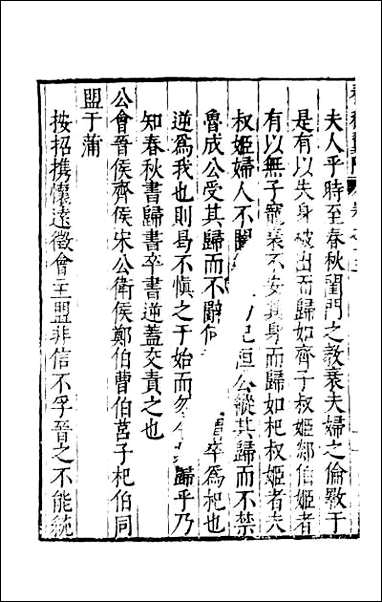 夫人乎時至春秋閨門之教衰夫婦之倫斁于
是有以失身被出而歸如齊子叔姬郯伯姬者
有以無子寵衰不安其身而歸如杞叔姬者夫
叔姬婦人不閑
杞桓公縱其歸而不禁
魯成公受其歸而不辭
卒爲杞也
逆爲我也則曷不慎之于始而
歸乎乃
知春秋書歸書卒書逆蓋交責之也
公會晉侯齊侯宋公衛侯鄭伯曹伯莒子杞伯同
盟于蒲
按招携懷遠徵會主盟非信不孚晉之不能統